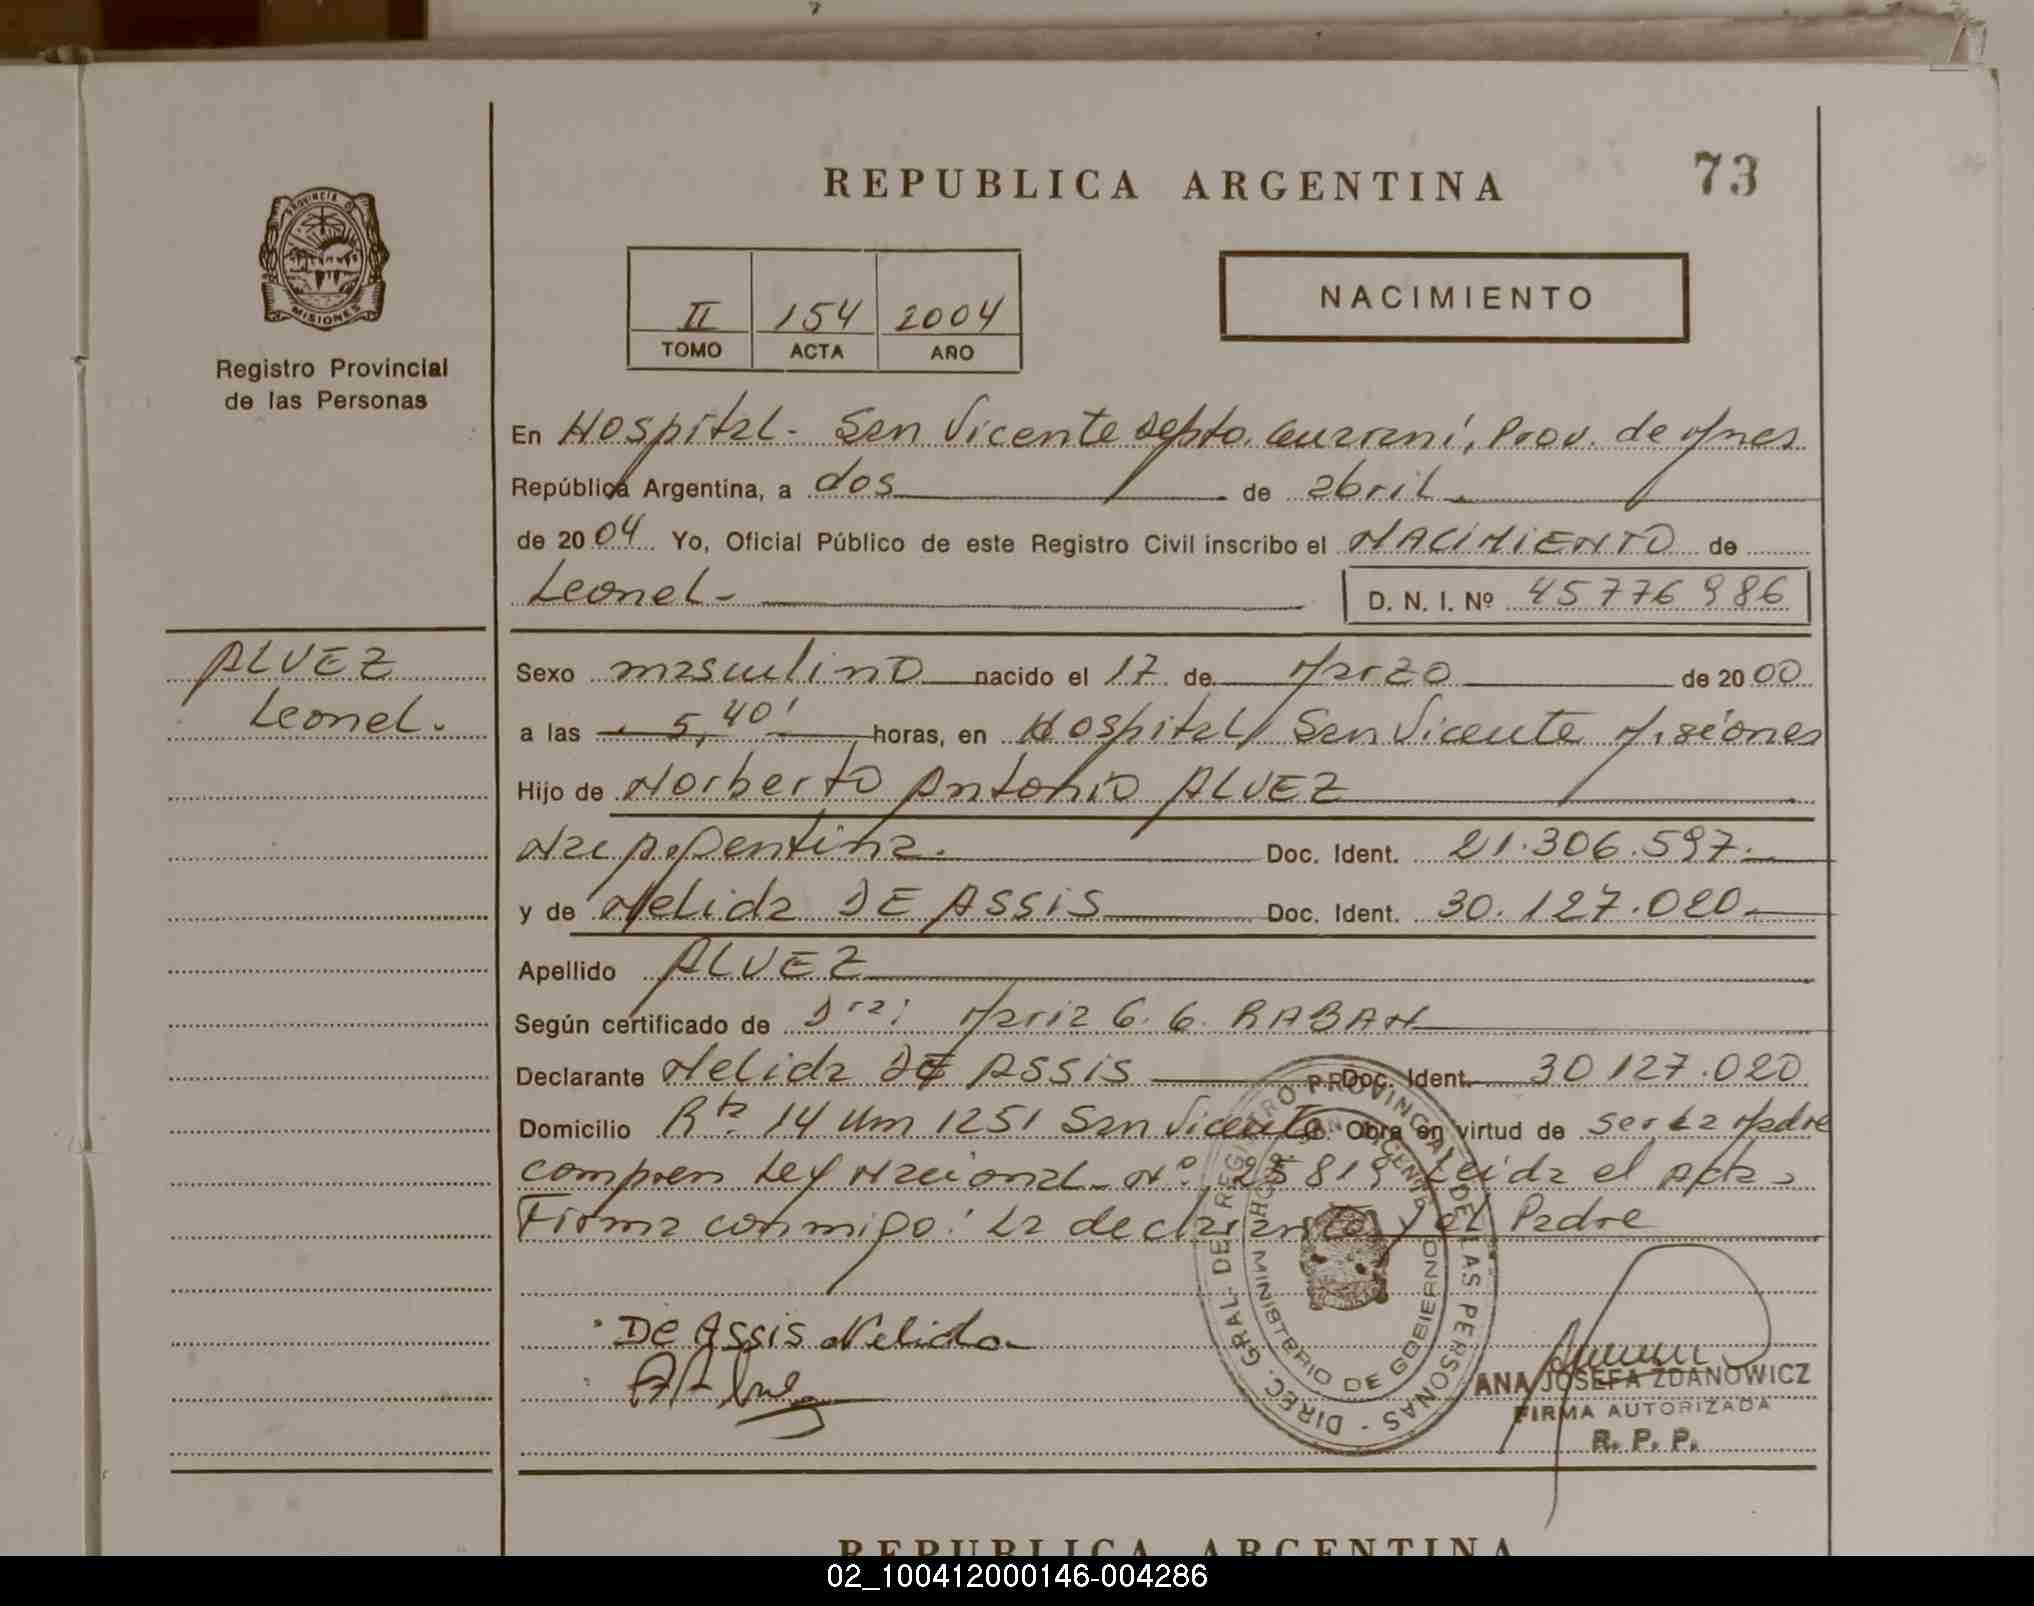 REPUBLICA ARGENTINA
73
PROVINCIA DE
MISIONES
Registro Provincial
de las Personas
II 154 2004
TOMO ACTA AÑO
NACIMIENTO
En Hospital - San Vicente Depto. Guaraní, Prov. de Mnes
República Argentina, a dos de abril
de 2004 Yo, Oficial Público de este Registro Civil inscribo el NACIMIENTO de
Leonel - D. N. I. Nº 45776986
ALVEZ
Leonel.
Sexo masculino nacido el 17 de Marzo de 2000
a las 5,40' horas, en Hospital San Vicente Misiones
Hijo de Norberto Antonio ALVEZ
Nac Argentina. Doc. Ident. 21.306.597.
y de Nelida DE ASSIS Doc. Ident. 30.127.020
Apellido ALVEZ
Según certificado de Dra: Maria G. G. RABAN
Declarante Nelida DE ASSIS Doc. Ident. 30127.020
Domicilio Rta 14 Km 1251 San Vicente. Obra en virtud de ser La Madre
compren Ley Nacional - Nº 25819 Leida el Acta
Firma conmigo: La declarante y el Padre
De Assis Nelida
DIREC. GRAL. DE REGISTRO PROVINCIAL DE LAS PERSONAS
MINISTERIO DE GOBIERNO
SAN VICENTE
ANA JOSEFA ZDANOWICZ
FIRMA AUTORIZADA
R. P. P.
REPUBLICA ARGENTINA
02_100412000146-004286